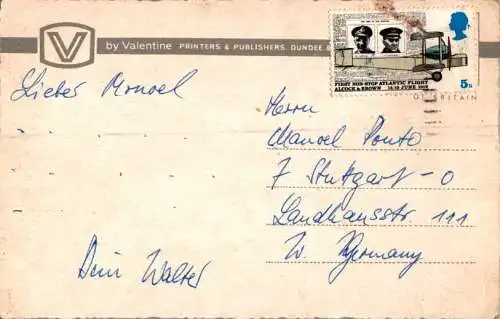 V
by Valentine PRINTERS & PUBLISHERS, DUNDEE &
FIRST NON-STOP ATLANTIC FLIGHT
ALCOCK & BROWN 14-15 JUNE 1919
5D
BRITAIN
Lieber Manoel
Herrn
Manoel Ponto
7 Stuttgart-O
Landhausstr. 111
W. Germany
Dein Walter